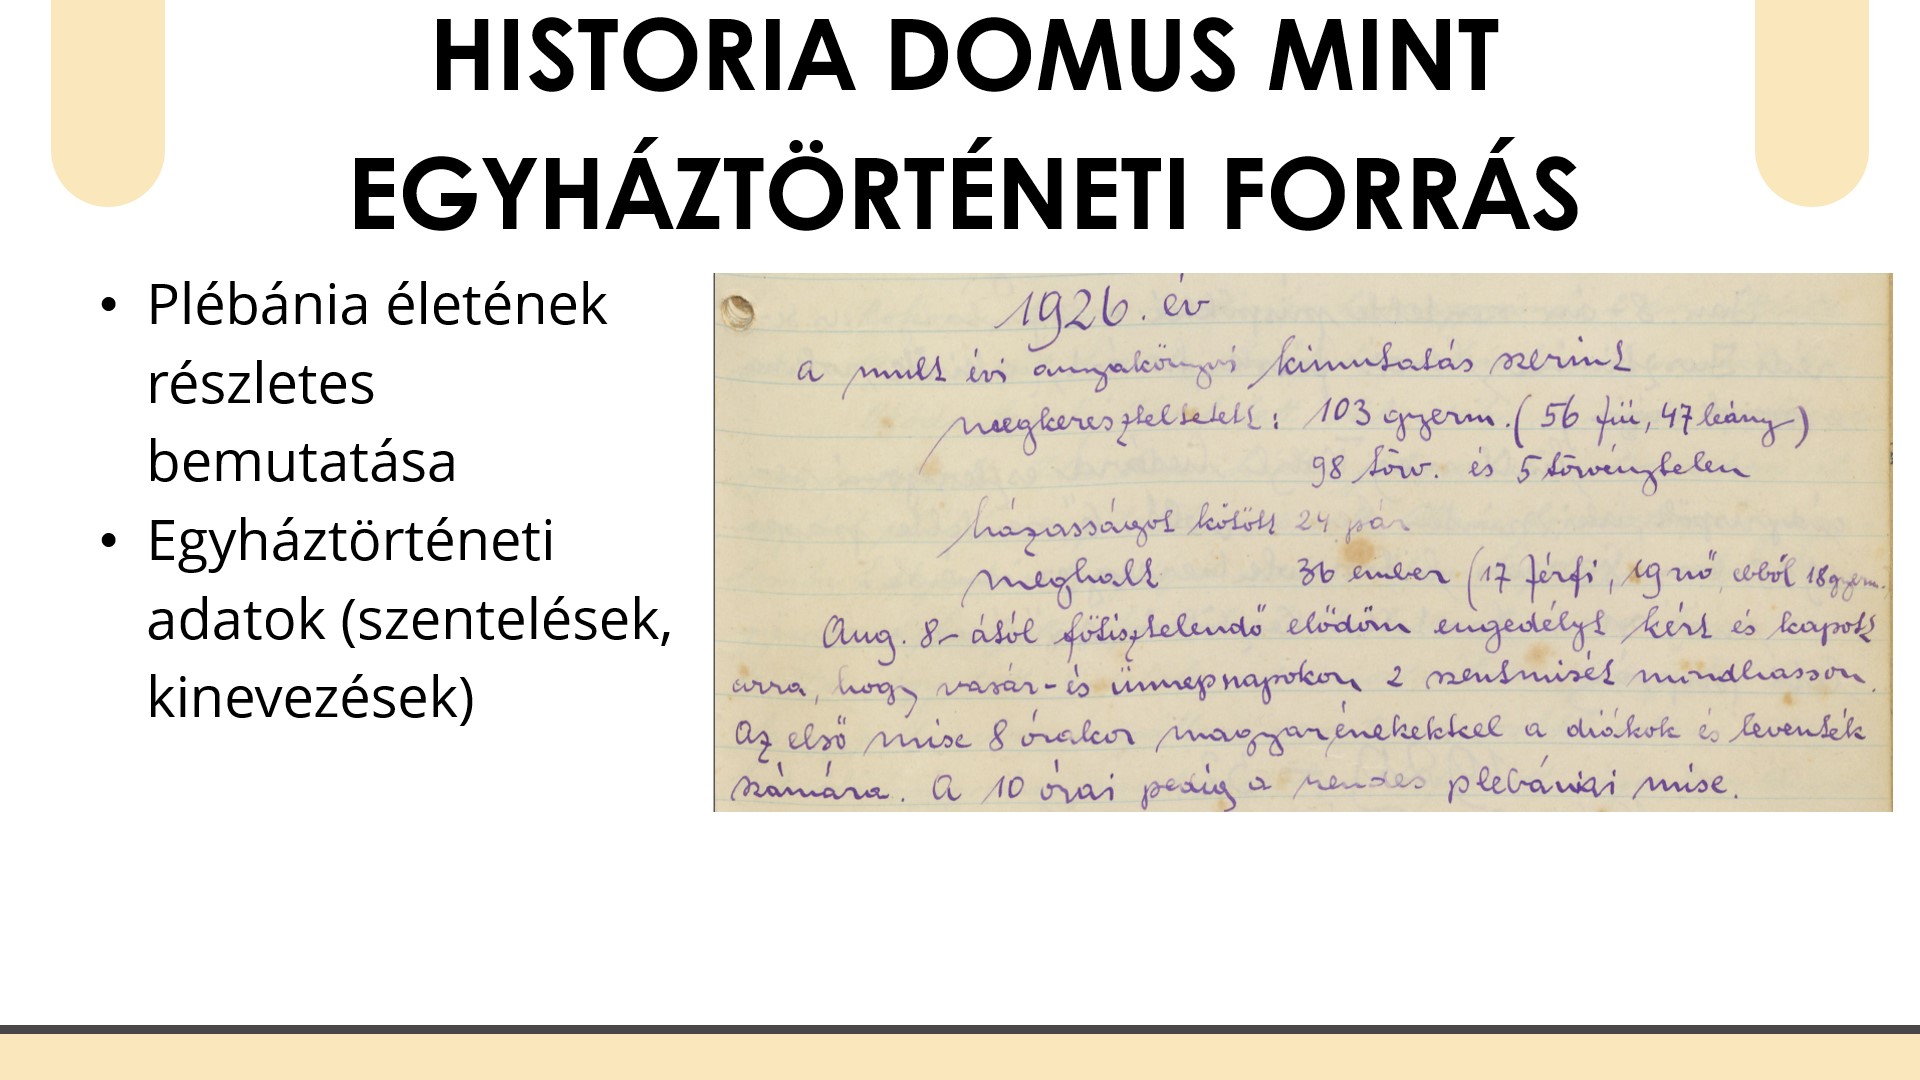 HISTORIA DOMUS MINT
EGYHÁZTÖRTÉNETI FORRÁS
• Plébánia életének
részletes
bemutatása
• Egyháztörténeti
adatok (szentelések,
kinevezések)
1926. év
A mult évi anyakönyvi kimutatás szerint
megkereszteltetett: 103 gyerm. (56 fiú, 47 leány)
98 törv. és 5 törvénytelen
házasságot kötött 24 pár
meghalt 36 ember (17 férfi, 19 nő, ebből 18 gyerm.
Aug. 8-ától főtisztelendő elődöm engedélyt kért és kapott
arra, hogy vasár- és ünnepnapokon 2 szentmisét mondhasson.
Az első mise 8 órakor magyar énekekkel a diákok és leventék
számára. A 10 órai pedig a rendes plebániai mise.